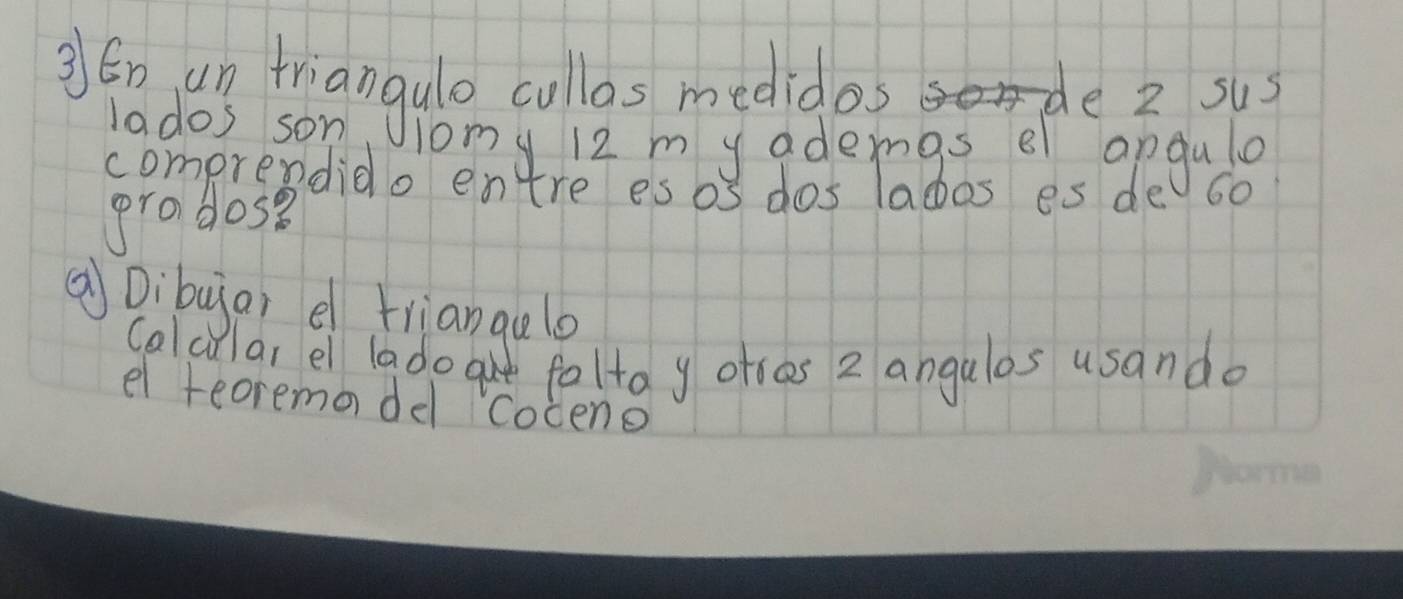 3) En un triangulo cullas medidos son de 2 sus
lados son 10m y 12 m y ademas el angulo
comprendido entre esos dos lados es de 60
grados?
a) Dibujar el triangulo
Calcular el lado que falta y otros 2 angulos usando
el teorema del coceno
Norma